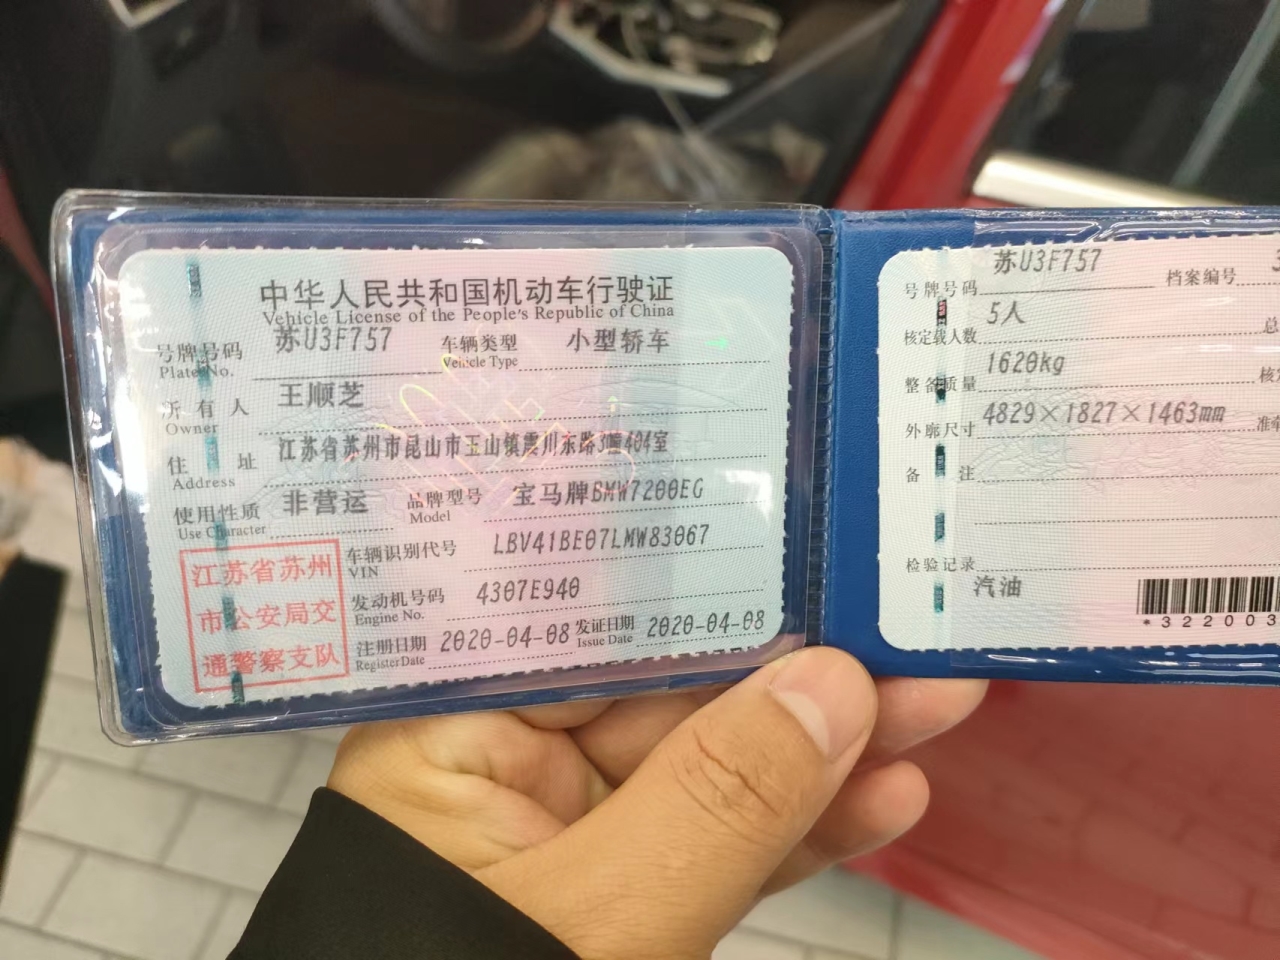 中华人民共和国机动车行驶证
Vehicle License of the People's Republic of China
号牌号码 苏U3F757 车辆类型 小型轿车
Plate No. Vehicle Type
所有人 王顺芝
Owner
住址 江苏省苏州市昆山市玉山镇震川东路3幢404室
Address
使用性质 非营运 品牌型号 宝马牌BMW7200EG
Use Character Model
车辆识别代号 LBV41BE07LMW83067
VIN
发动机号码 4307E940
Engine No.
注册日期 2020-04-08 发证日期 2020-04-08
Register Date Issue Date
江苏省苏州
市公安局交
通警察支队
号牌号码 苏U3F757 档案编号 3
核定载人数 5人 总
整备质量 1620kg 核
外廓尺寸 4829×1827×1463mm 准牵
备注
检验记录
汽油
*322003